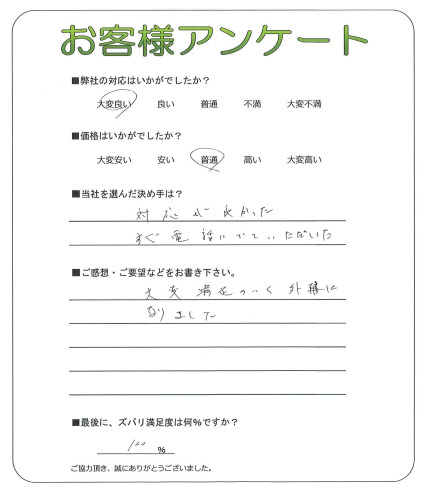 お客様アンケート
■弊社の対応はいかがでしたか？
大変良い 良い 普通 不満 大変不満
■価格はいかがでしたか？
大変安い 安い 普通 高い 大変高い
■当社を選んだ決め手は？
対応が良かった
すぐ電話にでていただいた
■ご感想・ご要望などをお書き下さい。
大変満足のいく外構に
なりました
■最後に、ズバリ満足度は何%ですか？
120 %
ご協力頂き、誠にありがとうございました。